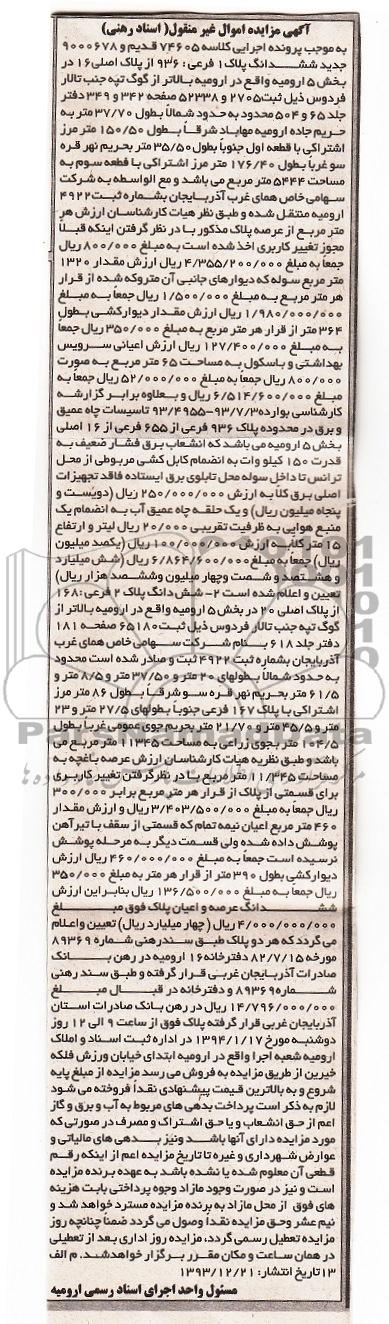 آگهی مزایده اموال غیر منقول( اسناد رهنی)
به موجب پرونده اجرایی کلاسه ۷۴۶۰۵ قدیم و ۹۰۰۰۶۷۸
جدید ششدانگ پلاک۱ فرعی : ۹۳۶ از پلاک اصلی۱۶ در
بخش ۵ ارومیه واقع در ارومیه بالاتر از گوگ تپه جنب تالار
فردوس ذیل ثبت۲۷۰۵ و ۵۲۳۳۸ صفحه ۳۴۲ و ۳۴۹ دفتر
جلد ۶۵ و ۵۰۴ محدود به حدود شمالاً بطول ۳۷/۷۰ متر به
حریم جاده ارومیه مهاباد شرقاً بطول ۱۵۰/۵۰ متر مرز
اشتراکی با قطعه اول جنوباً بطول ۳۵/۵۰ متر بحریم نهر قره
سو غرباً بطول ۱۷۶/۴۰ متر مرز اشتراکی با قطعه سوم به
مساحت ۵۴۴۴ متر مربع می باشد و مع الواسطه به شرکت
سهامی خاص همای غرب آذربایجان بشماره ثبت۴۹۲۲
ارومیه منتقل شده و طبق نظر هیات کارشناسان ارزش هر
متر مربع از عرصه پلاک مذکور با در نظر گرفتن اینکه قبلاً
مجوز تغییر کاربری اخذ شده است به مبلغ ۸۰۰/۰۰۰ ریال
جمعاً به مبلغ ۴/۳۵۵/۲۰۰/۰۰۰ ریال ارزش مقدار ۱۳۲۰
متر مربع سوله که دیوارهای جانبی آن متروکه شده از قرار
هر متر مربع به مبلغ ۱/۵۰۰/۰۰۰ ریال جمعاً به مبلغ
۱/۹۸۰/۰۰۰/۰۰۰ ریال ارزش مقدار دیوارکشی بطول
۳۶۴ متر از قرار هر متر مربع به مبلغ ۳۵۰/۰۰۰ ریال جمعاً
به مبلغ ۱۲۷/۴۰۰/۰۰۰ ریال ارزش اعیانی سرویس
بهداشتی و باسکول به مساحت ۶۵ متر مربع به صورت
۸۰۰/۰۰۰ ریال جمعاً به مبلغ ۵۲/۰۰۰/۰۰۰ ریال جمعاً به
مبلغ ۶/۵۱۴/۶۰۰/۰۰۰ ریال و بعلاوه برابر گزارشه
کارشناسی بوارده۹۳/۷/۳-۹۳/۴۹۵۵ تاسیسات چاه عمیق
و برق در محدوده پلاک ۹۳۶ فرعی از ۶۵۵ فرعی از ۱۶ اصلی
بخش ۵ ارومیه می باشد که انشعاب برق فشار ضعیف به
قدرت ۱۵۰ کیلو وات به انضمام کابل کشی مربوطی از محل
ترانس تا داخل سوله محل تابلوی برق ایستاده فاقد تجهیزات
اصلی برق کلاً به ارزش ۲۵۰/۰۰۰/۰۰۰ ریال (دویست و
پنجاه میلیون ریال) و یک حلقه چاه عمیق آب به انضمام یک
منبع هوایی به ظرفیت تقریبی ۲۰/۰۰۰ ریال لیتر و ارتفاع
۱۵ متر کلاً به ارزش ۱۰۰/۰۰۰/۰۰۰ ریال (یکصد میلیون
ریال) جمعاً به مبلغ ۶/۸۶۴/۶۰۰/۰۰۰ (شش میلیارد
و هشتصد و شصت وچهار میلیون وششصد هزار ریال)
تعیین و اعلام شده است ۲- شش دانگ پلاک ۲ فرعی :۱۶۸
از پلاک اصلی ۲۰ در بخش ۵ ارومیه واقع در ارومیه بالاتر از
گوگ تپه جنب تالار فردوس ذیل ثبت ۶۵۱۸۰ صفحه ۱۸۱
دفتر جلد ۶۱۸ بنام شرکت سهامی خاص همای غرب
آذربایجان بشماره ثبت ۴۹۲۲ ثبت و صادر شده است محدود
به حدود شمالاً بطولهای ۲۰ متر و ۳۷/۵۰ متر و ۸/۵ متر و
۶۱/۵ متر بحریم نهر قره سو شرقاً بطول ۸۶ متر مرز
اشتراکی با پلاک ۱۶۷ فرعی جنوباً بطولهای ۲۷/۵ متر و ۲۳
متر و ۴۵/۵ متر و ۲۱/۷۰ متر بحریم جوی عمومی غرباً بطول
۱۰۴/۵ متر بجوی زراعی به مساحت ۱۱۳۴۵ متر مربع می
باشد و طبق نظریه هیات کارشناسان ارزش عرصه باغچه به
مساحت ۱۱/۳۴۵ متر مربع با در نظرگرفتن تغییر کاربری
برای قسمتی از پلاک از قرار هر متر مربع برابر ۳۰۰/۰۰۰
ریال جمعاً به مبلغ ۳/۴۰۳/۵۰۰/۰۰۰ ریال و ارزش مقدار
۴۶۰ متر مربع اعیان نیمه تمام که قسمتی از سقف با تیرآهن
پوشش داده شده ولی قسمت دیگر به مرحله پوشش
نرسیده است جمعاً به مبلغ ۴۶۰/۰۰۰/۰۰۰ ریال ارزش
دیوارکشی بطول ۳۹۰ متر از قرار هر متر به مبلغ ۳۵۰/۰۰۰
ریال جمعاً به مبلغ ۱۳۶/۵۰۰/۰۰۰ ریال بنابراین ارزش
ششدانگ عرصه و اعیان پلاک فوق مبلغ
۴/۰۰۰/۰۰۰/۰۰۰ ریال ( چهار میلیارد ریال) تعیین و اعلام
می گردد که هر دو پلاک طبق سندرهنی شماره ۸۹۳۶۹
مورخه ۸۲/۷/۱۵ دفترخانه۱۶ ارومیه در رهن بانک
صادرات آذربایجان غربی قرار گرفته و طبق سند رهنی
شماره۸۹۳۶۹ و دفترخانه در قبال مبلغ
۱۴/۷۹۶/۰۰۰/۰۰۰ ریال در رهن بانک صادرات استان
آذربایجان غربی قرار گرفته پلاک فوق از ساعت ۹ الی ۱۲ روز
دوشنبه مورخ ۱۳۹۴/۱/۱۷ در اداره ثبت اسناد و املاک
ارومیه شعبه اجرا واقع در ارومیه ابتدای خیابان ورزش فلکه
خیرین از طریق مزایده به فروش می رسد مزایده از مبلغ پایه
شروع و به بالاترین قیمت پیشنهادی نقداً فروخته می شود
لازم به ذکر است پرداخت بدهی های مربوط به آب و برق و گاز
اعم از حق انشعاب و یا حق اشتراک و مصرف در صورتی که
مورد مزایده دارای آنها باشد ونیز بدهی های مالیاتی و
عوارض شهرداری و غیره تا تاریخ مزایده اعم از اینکه رقم
قطعی آن معلوم شده یا نشده باشد به عهده برنده مزایده
است و نیز در صورت وجود مازاد وجوه پرداختی بابت هزینه
های فوق از محل مازاد به برنده مزایده مسترد خواهد شد و
نیم عشر وحق مزایده نقداً وصول می گردد ضمناً چنانچه روز
مزایده تعطیل رسمی گردد، مزایده روز اداری بعد از تعطیلی
در همان ساعت و مکان مقرر برگزار خواهدشد. م الف
۱۳تاریخ انتشار: ۱۳۹۳/۱۲/۲۱
مسئول واحد اجرای اسناد رسمی ارومیه